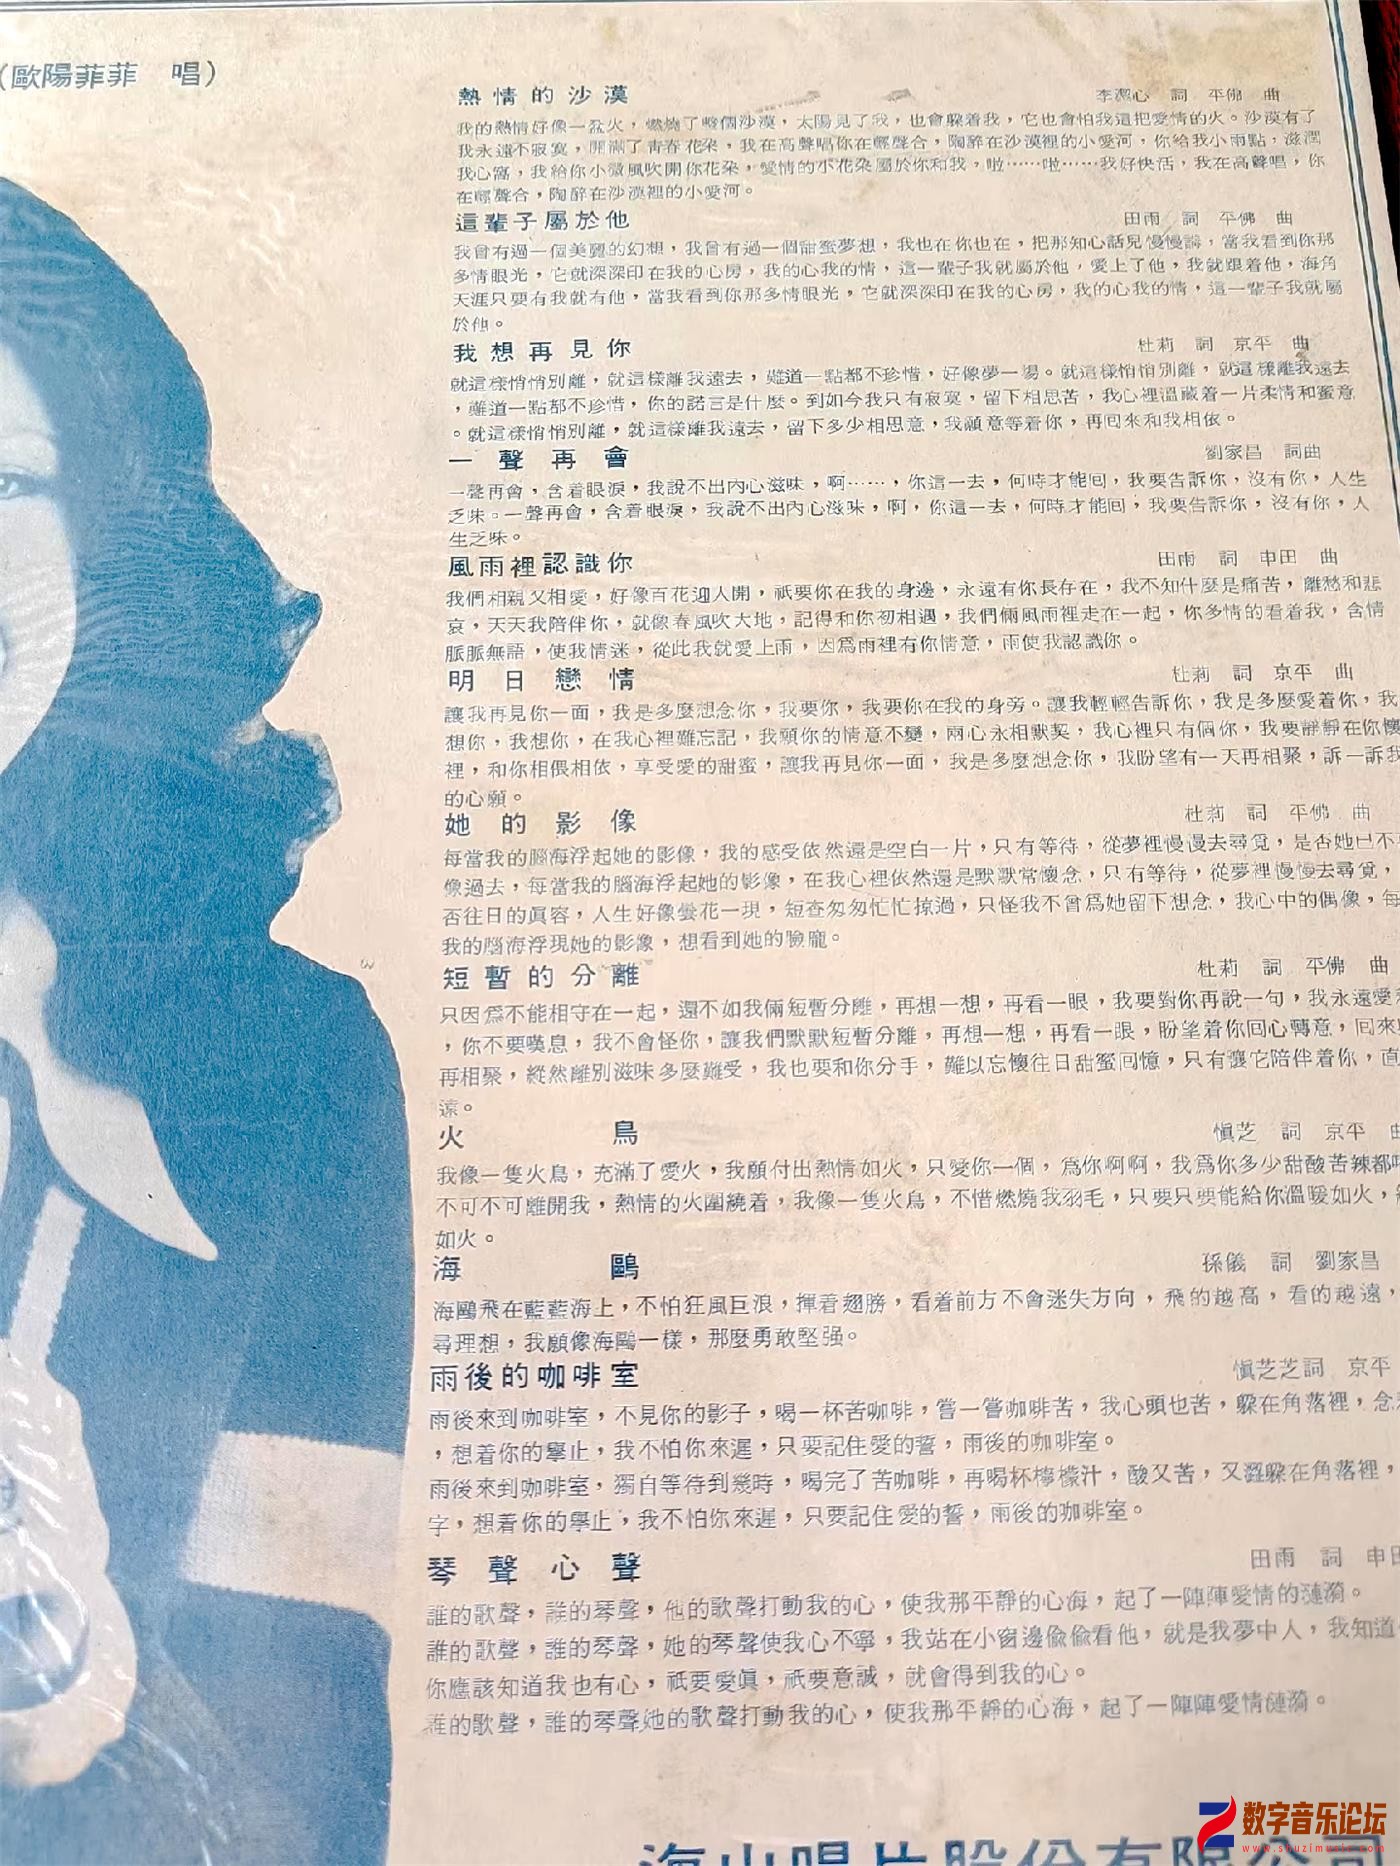 （歐陽菲菲　唱）
熱情的沙漠　李潔心　詞　平佛　曲
我的熱情好像一盆火，燃燒了整個沙漠，太陽見了我，也會躲着我，它也會怕我這把愛情的火。沙漠有了
我永遠不寂寞，開滿了青春花朵，我在高聲唱你在輕聲合，陶醉在沙漠裡的小愛河，你給我小雨點，滋潤
我心窩，我給你小微風吹開你花朵，愛情的小花朵屬於你和我，啦……啦……我好快活，我在高聲唱，你
在輕聲合，陶醉在沙漠裡的小愛河。
這輩子屬於他　田雨　詞　平佛　曲
我曾有過一個美麗的幻想，我曾有過一個甜蜜夢想，我也在你也在，把那知心話兒慢慢講，當我看到你那
多情眼光，它就深深印在我的心房，我的心我的情，這一輩子我就屬於他，愛上了他，我就跟着他，海角
天涯只要有我就有他，當我看到你那多情眼光，它就深深印在我的心房，我的心我的情，這一輩子我就屬
於他。
我想再見你　杜莉　詞　京平　曲
就這樣悄悄別離，就這樣離我遠去，難道一點都不珍惜，好像夢一場。就這樣悄悄別離，就這樣離我遠去
，難道一點都不珍惜，你的諾言是什麼。到如今我只有寂寞，留下相思苦，我心裡溫藏着一片柔情和蜜意
。就這樣悄悄別離，就這樣離我遠去，留下多少相思意，我願意等着你，再回來和我相依。
一聲再會　劉家昌　詞曲
一聲再會，含着眼淚，我說不出內心滋味，啊……，你這一去，何時才能回，我要告訴你，沒有你，人生
乏味。一聲再會，含着眼淚，我說不出內心滋味，啊，你這一去，何時才能回，我要告訴你，沒有你，人
生乏味。
風雨裡認識你　田雨　詞　申田　曲
我們相親又相愛，好像百花迎人開，祇要你在我的身邊，永遠有你長存在，我不知什麼是痛苦，離愁和悲
哀，天天我陪伴你，就像春風吹大地，記得和你初相遇，我們倆風雨裡走在一起，你多情的看着我，含情
脈脈無語，使我情迷，從此我就愛上雨，因爲雨裡有你情意，雨使我認識你。
明日戀情　杜莉　詞　京平　曲
讓我再見你一面，我是多麼想念你，我要你，我要你在我的身旁。讓我輕輕告訴你，我是多麼愛着你，我
想你，我想你，在我心裡難忘記，我願你的情意不變，兩心永相默契，我心裡只有個你，我要靜靜在你懷
裡，和你相偎相依，享受愛的甜蜜，讓我再見你一面，我是多麼想念你，我盼望有一天再相聚，訴一訴我
的心願。
她的影像　杜莉　詞　平佛　曲
每當我的腦海浮起她的影像，我的感受依然還是空白一片，只有等待，從夢裡慢慢去尋覓，是否她已不
像過去，每當我的腦海浮起她的影像，在我心裡依然還是默默常懷念，只有等待，從夢裡慢慢去尋覓，
否往日的眞容，人生好像曇花一現，短查匆匆忙忙掠過，只怪我不曾爲她留下想念，我心中的偶像，每
我的腦海浮現她的影像，想看到她的臉龐。
短暫的分離　杜莉　詞　平佛　曲
只因爲不能相守在一起，還不如我倆短暫分離，再想一想，再看一眼，我要對你再說一句，我永遠愛
，你不要嘆息，我不會怪你，讓我們默默短暫分離，再想一想，再看一眼，盼望着你回心轉意，回來
再相聚，縱然離別滋味多麼難受，我也要和你分手，難以忘懷往日甜蜜回憶，只有讓它陪伴着你，直
遠。
火鳥　愼芝　詞　京平　曲
我像一隻火鳥，充滿了愛火，我願付出熱情如火，只愛你一個，爲你啊啊，我爲你多少甜酸苦辣都
不可不可離開我，熱情的火圍繞着，我像一隻火鳥，不惜燃燒我羽毛，只要只要能給你溫暖如火，
如火。
海鷗　孫儀　詞　劉家昌
海鷗飛在藍藍海上，不怕狂風巨浪，揮着翅膀，看着前方不會迷失方向，飛的越高，看的越遠，
尋理想，我願像海鷗一樣，那麼勇敢堅强。
雨後的咖啡室　愼芝芝詞　京平
雨後來到咖啡室，不見你的影子，喝一杯苦咖啡，嘗一嘗咖啡苦，我心頭也苦，躲在角落裡，念
，想着你的擧止，我不怕你來遲，只要記住愛的誓，雨後的咖啡室。
雨後來到咖啡室，獨自等待到幾時，喝完了苦咖啡，再喝杯檸檬汁，酸又苦，又澀躲在角落裡，
字，想着你的擧止，我不怕你來遲，只要記住愛的誓，雨後的咖啡室。
琴聲心聲　田雨　詞　申田
誰的歌聲，誰的琴聲，他的歌聲打動我的心，使我那平靜的心海，起了一陣陣愛情的漣漪。
誰的歌聲，誰的琴聲，她的琴聲使我心不寧，我站在小窗邊偸偸看他，就是我夢中人，我知道
你應該知道我也有心，祇要愛眞，祇要意誠，就會得到我的心。
誰的歌聲，誰的琴聲她的歌聲打動我的心，使我那平靜的心海，起了一陣陣愛情漣漪。
海山唱片股份有限公司
数字音乐论坛
www.szuzimusic.com